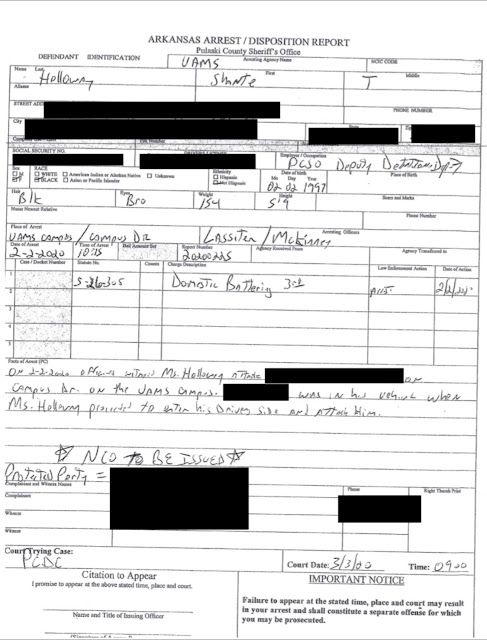 ARKANSAS ARREST / DISPOSITION REPORT
Pulaski County Sheriff's Office
DEFENDANT IDENTIFICATION UAMS Arresting Agency Name NCIC CODE
Name Last First Middle
Holloway Shante T
Aliases
STREET ADD
PHONE NUMBER
City State
SOCIAL SECURITY NO. Employer/Occupation
PCSO Deputy
Sex RACE Ethnicity Date of birth Place of Birth
M WHITE American Indian or Alaskan Native Unknown Hispanic Mo Day Year
F BLACK Asian or Pacific Islander Not Hispanic 02 02 1997
Hair Eyes Weight Height Scars and Marks
Blk Bro 154 5'9
Name Nearest Relative Phone Number
Place of Arrest Arresting Officers
UAMS campus / Campus Dr Lassiter / McKinney
Date of Arrest Time of Arrest Bail Amount Set Report Number Agency Received From Agency Transferred to
2-2-2020 10:15 20200225
Case / Docket Number Statute No. Counts Charge Description Law Enforcement Action Date of Action
1 5-26-305 Domestic Battering 3rd
2 Arrst.
3
4
5
Facts of Arrest (PC)
ON 2-2-2020 officers witness Ms. Holloway attack on
Campus Dr. on the UAMS Campus. was in his vehicle when
Ms. Holloway proceeded to enter his Driver side and attack him.
☆ NCO to BE ISSUED ☆
Protected Party =
Complainant and Witness Names Phone Right Thumb Print
Complainant
Witness
Witness
Court Trying Case: Court Date: 3/3/20 Time: 0900
PCDC
Citation to Appear IMPORTANT NOTICE
I promise to appear at the above stated time, place and court.
Failure to appear at the stated time, place and court may result
in your arrest and shall constitute a separate offense for which
you may be prosecuted.
Name and Title of Issuing Officer